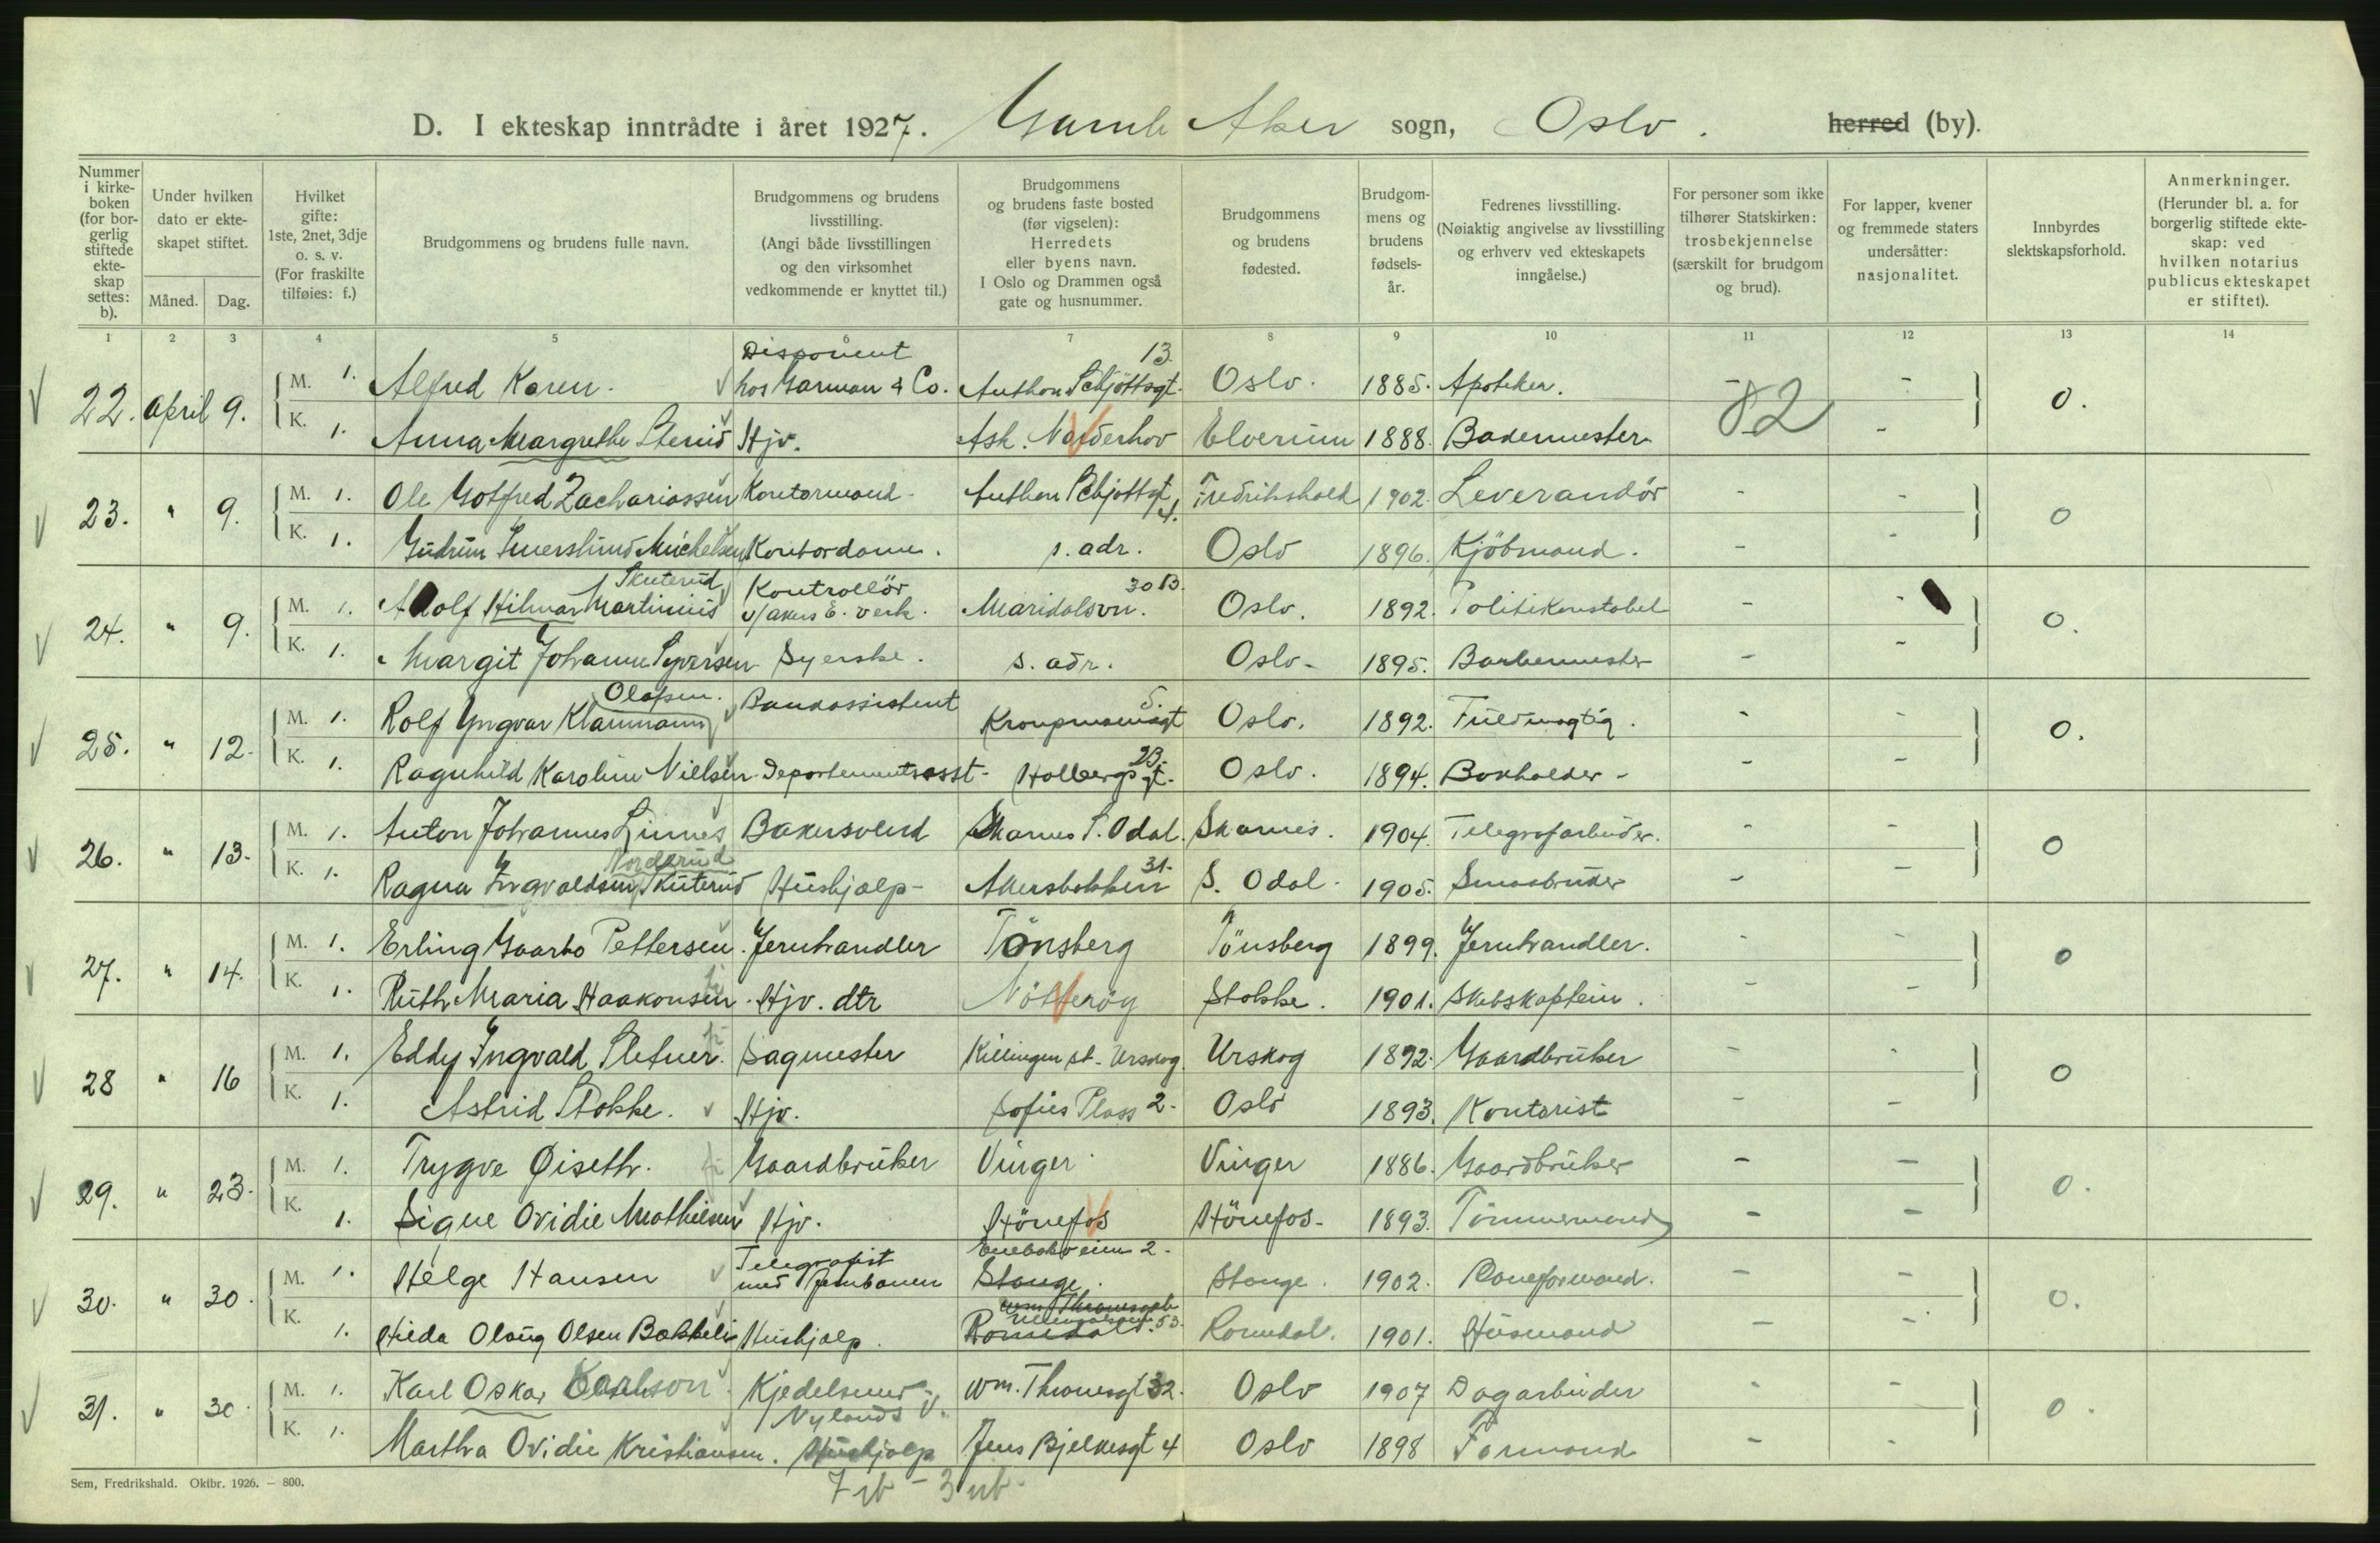 D. I ekteskap inntrådte i året 1927. Gamle Aker sogn, Oslo. herred (by).
Nummer i kirkeboken (for borgerlig stiftede ekteskap settes: b).
Under hvilken dato er ekteskapet stiftet.
Måned. Dag.
Hvilket gifte: 1ste, 2net, 3dje o. s. v. (For fraskilte tilføies: f.)
Brudgommens og brudens fulle navn.
Brudgommens og brudens livsstilling. (Angi både livsstillingen og den virksomhet vedkommende er knyttet til.)
Brudgommens og brudens faste bosted (før vigselen): Herredets eller byens navn. I Oslo og Drammen også gate og husnummer.
Brudgommens og brudens fødested.
Brudgommens og brudens fødselsår.
Fedrenes livsstilling. (Nøiaktig angivelse av livsstilling og erhverv ved ekteskapets inngåelse.)
For personer som ikke tilhører Statskirken: trosbekjennelse (særskilt for brudgom og brud).
For lapper, kvener og fremmede staters undersåtter: nasjonalitet.
Innbyrdes slektskapsforhold.
Anmerkninger. (Herunder bl. a. for borgerlig stiftede ekteskap: ved hvilken notarius publicus ekteskapet er stiftet).
1 2 3 4 5 6 7 8 9 10 11 12 13 14
22. April 9. M. 1. Alfred Karen. Disponent hos Garman & Co. Anthon Schjöttsgt. 13. Oslo. 1885. Apoteker. - - 0.
K. 1. Anna Margrethe Stenid Hjv. Ask. Norderhov Elverum 1888. Bademester 82 -
23. " 9. M. 1. Ole Gotfred Zachariassen Kontormand Anthon Schjöttsgt 4. Fredrikshald 1902. Leverandör - - 0
K. 1. Gudrun Smerslund Michelsen Kontordame. s. adr. Oslo 1896. Kjöbmand. - -
24. " 9. M. 1. Adolf Hilmar Martinius Skuterud Kontrollör v/ Akers E. verk. Maridalsvn. 30 B. Oslo. 1892. Politikonstabel - - 0.
K. 1. Margit Johanne Syversen Syerske. s. adr. Oslo. 1895. Barbermester - -
25. " 12. M. 1. Rolf Yngvar Klammann Olafsen. Bankassistent Kronprinsensgt 5. Oslo. 1892. Fuldmægtig. - - 0.
K. 1. Ragnhild Karoline Nielsen Departementsasst. Holbergsgt. 23. Oslo. 1894. Bokholder - -
26. " 13. M. 1. Anton Johannes Linnes Bakersvend Skarnes S. Odal. Skarnes. 1904. Telegrafarbeider. - - 0
K. 1. Ragna Ingvaldsen Skuterud Norderud Hushjælp Akersbakken 31. S. Odal. 1905. Smaabruker - -
27. " 14. M. 1. Erling Gaarbo Pettersen. Jernhandler Tönsberg Tönsberg 1899. Jernhandler. - - 0
K. 1. Ruth Maria Haakonsen. Hjv. dtr Nötteröy Stokke. 1901. Skibskaptein. - -
28 " 16 M. 1. Eddy Ingvald Slefner. Sagmester Killingen st. Urskog. Urskog 1892. Gaardbruker - 0
K. 1. Astrid Stokke. Hjv. Sofies Plass 2. Oslo 1893. Kontorist - -
29. " 23. M. 1. Trygve Øiseth. Gaardbruker Vinger Vinger 1886. Gaardbruker - - 0.
K. 1. Signe Ovidie Mathiesen Hjv. Hönefos Hönefos. 1893. Tömmermand - -
30. " 30. M. 1. Helge Hansen Telegrafist ved Jernbanen Enebakveien 2. Stange. Stange. 1902. Baneformand. - - 0.
K. 1. Hilda Olaug Olsen Bakkeli Hushjælp. Romedal. 53. Romedal. 1901. Husmand - -
31. " 30. M. 1. Karl Oskar Karlson Kjedelsmed Nylands V. Wm. Thranesgt 32. Oslo 1907 Dagarbeider - - 0.
K. 1. Martha Ovidie Kristiansen. Hushjælp Jens Bjelkesgt 4 Oslo 1898 Formand - -
Sem, Fredrikshald. Oktbr. 1926. – 800.